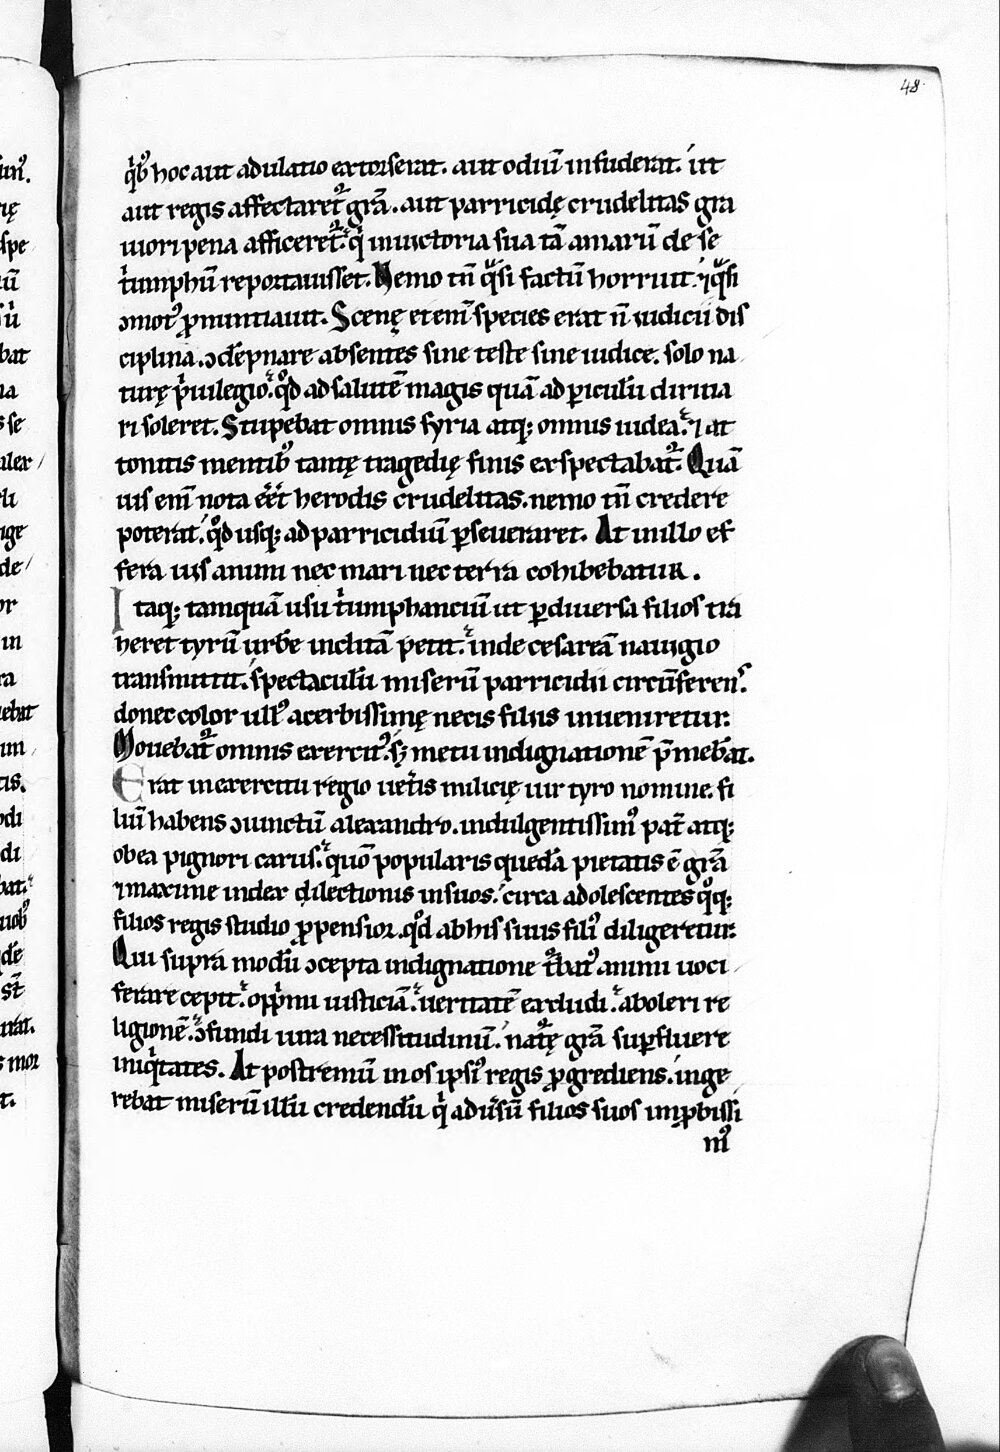 48.
q̇bꝰ hoc aut adulatio extorserat. aut odiū infuderat. ut
aut regis affectaretᷣ grā. aut parricidę crudelitas gra
uiori pena afficeretᷣ. q̇ inuictoria sua tā amarū de se
t̍umphū reportauisset. Nemo tn̄ qᷓsi factū horruit. ⁊ qᷓsi
ꝯmotꝰ ꝓnuntiauit. Scenę etenī species erat n̄ iudicii dis
ciplina. ꝯdēpnare absentes sine teste sine iudice. solo na
turę p̍uilegio. qᷘd ad salutē magis quā ad ꝑiculū diriua
ri soleret. Stupebat omnis syria atq; omnis iudea. ⁊ at
tonitis mentibꝰ tantę tragedię finis exspectabatᷣ. Quā
uis enī nota eēt herodis crudelitas. nemo tn̄ credere
poterat. qᷘd usq; ad parricidiū ꝑseueraret. At in illo ef
fera uis animi nec mari nec terra cohibebatur.
Itaq; tamquā usu t̍umphanciū ut ꝑ diuersa filios tra
heret tyrū urbē inclitā petit. inde cesareā nauigio
transmittit. spectaculū miserū parricidii circūferens.
donec color ullꝰ acerbissimę necis filiis inueniretur.
Mouebatᷣ omnis exercitꝰ. sꝫ metu indignationē p̄mebat.
Erat in exercitu regio uet̍is milicię uir tyro nomine. fi
liū habens ꝯiunctū alexandro. indulgentissimꝰ pat̄ atq;
obea pignori carus. quō popularis quedā pietatis ē grā
⁊ maxime index dilectionis insuos. circa adolescentes qᷘq;
filios regis studio ꝓpensior. qᷘd abhis suus filiꝰ diligeretur.
Qui supra modū ꝯcepta indignatione t᷒batꝰ animi uoci
ferare cepit. opp̍mi iusticiā. ueritatē excludi. aboleri re
ligionē. ꝯfundi iura necessitudinū. natᷓę grā suꝑfluere
iniq̍tates. At postremū in os ipsiꝰ regis ꝓgrediens. inge
rebat miserū illū credendū q̇ aduᷣsū filios suos inꝓbissi
mꝰ